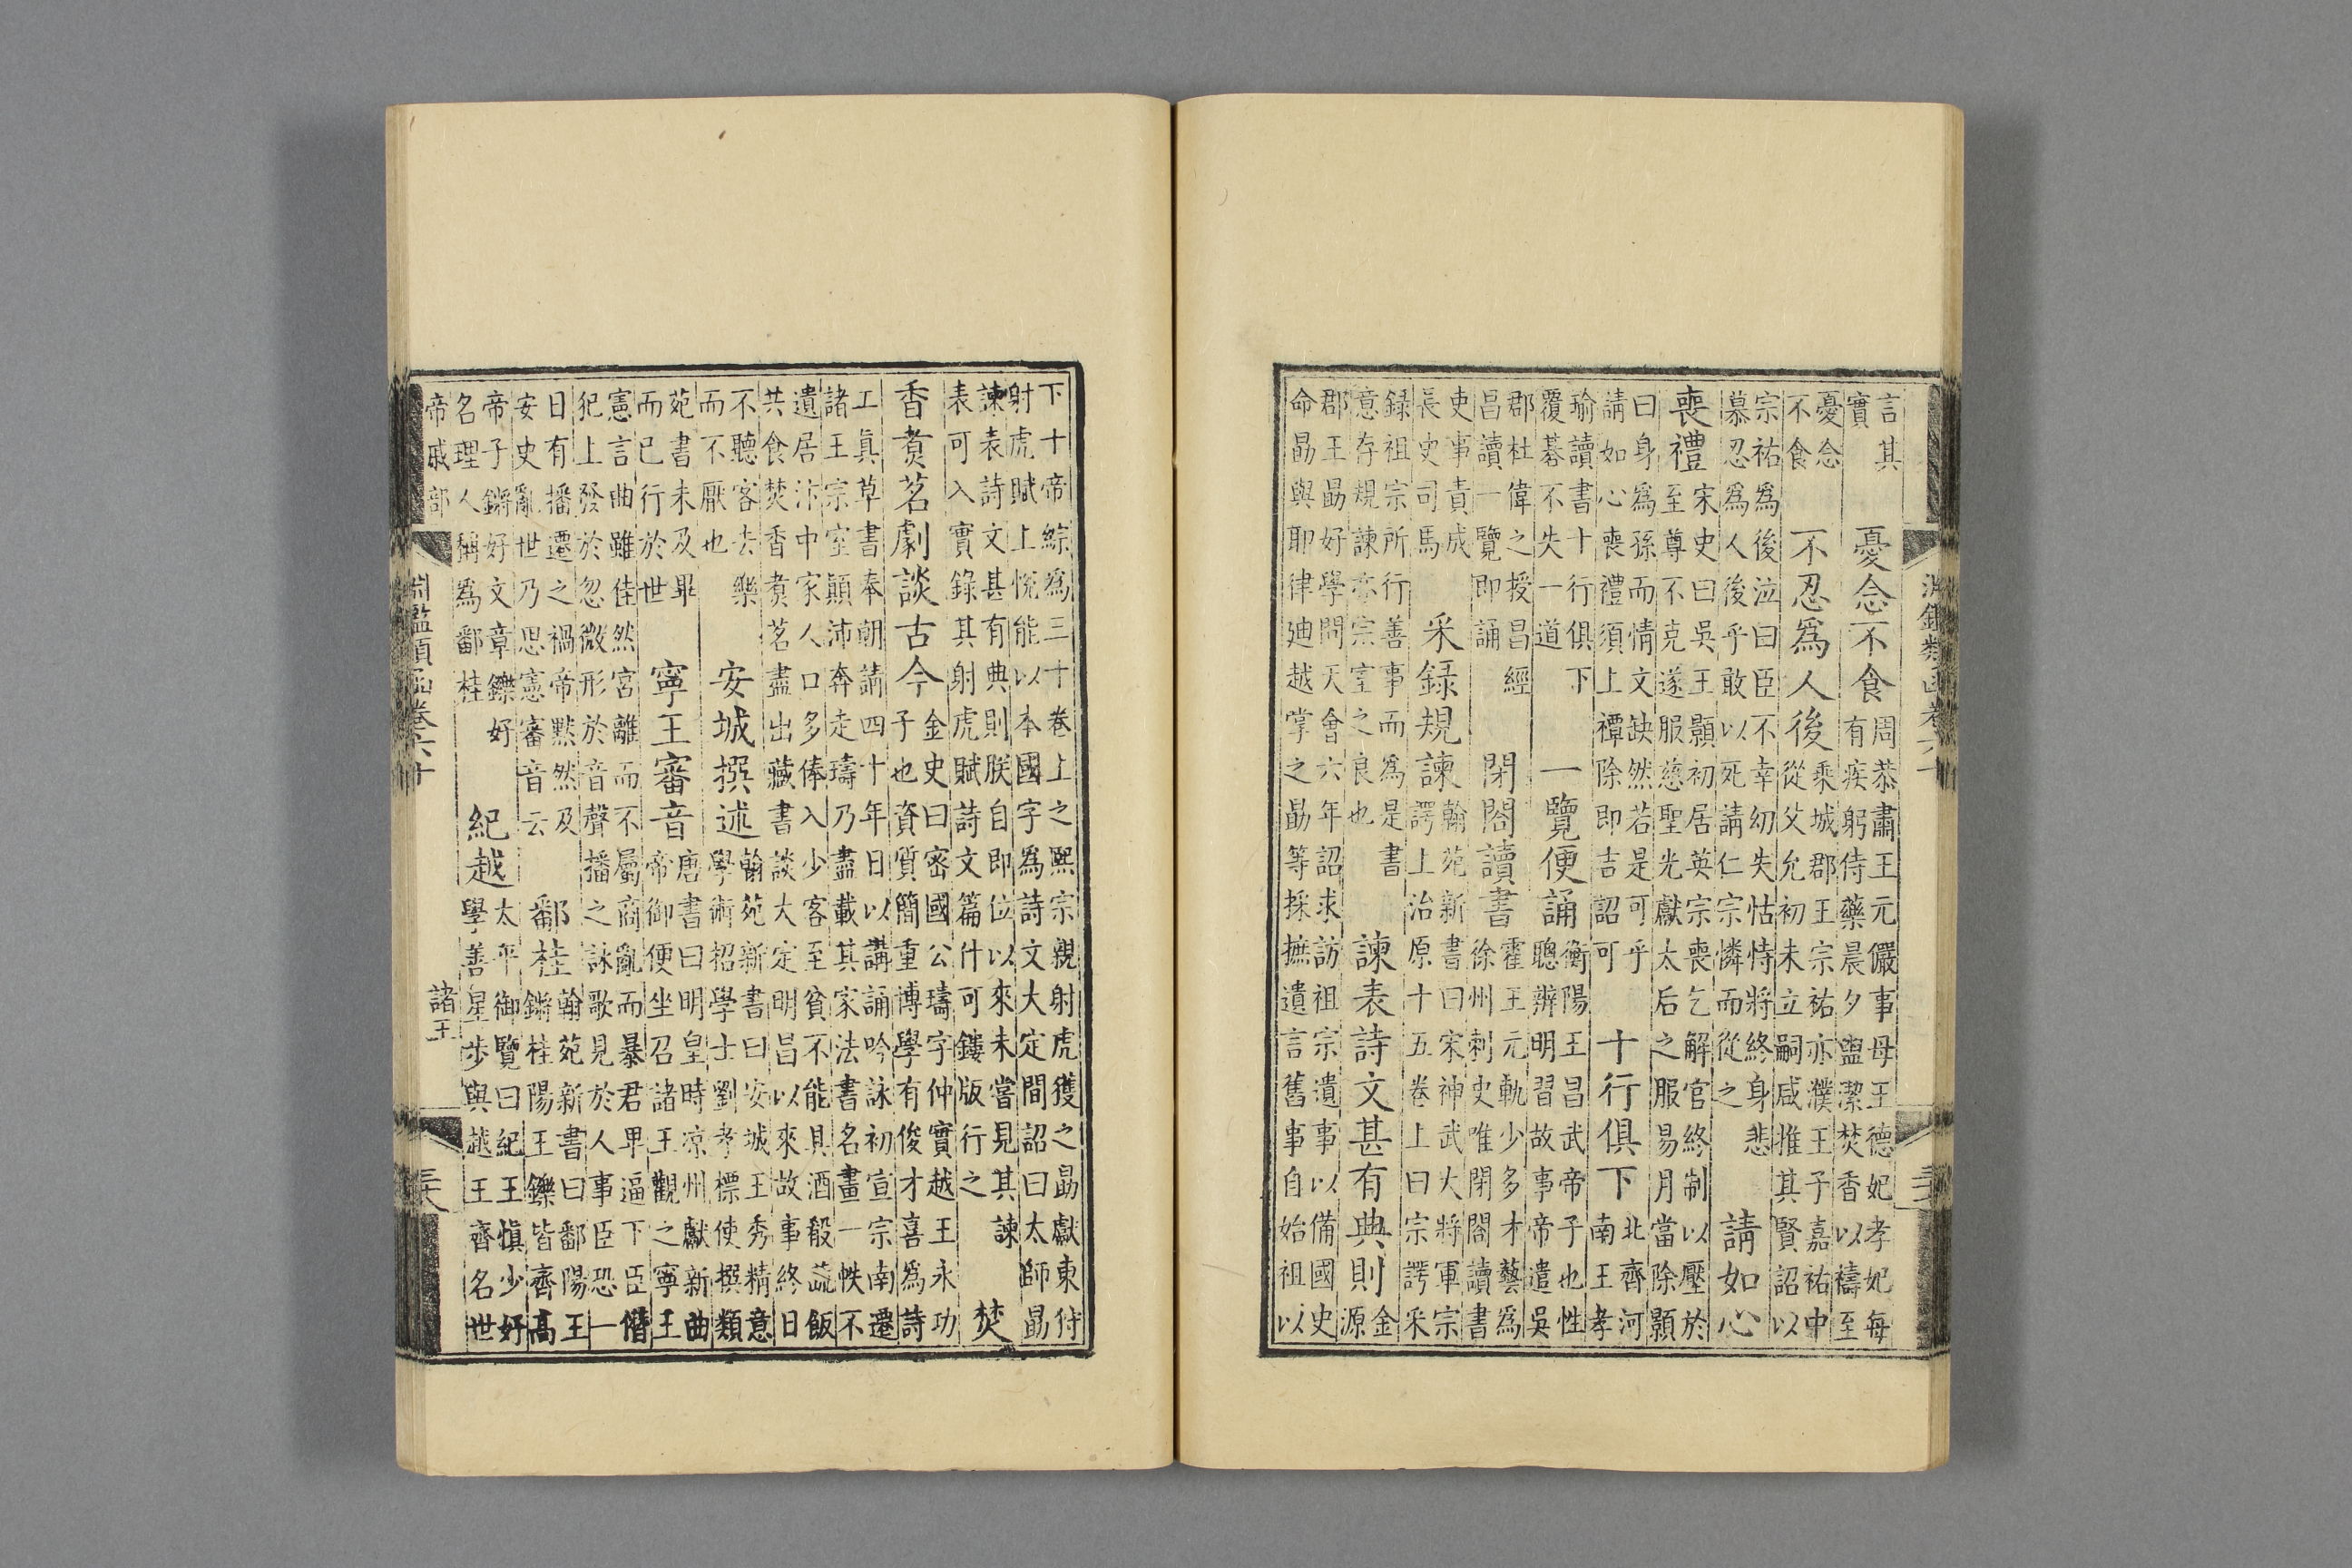 淵鑑類函卷六十
言其
實
憂念不食
周恭肅王元儼事母王德妃孝妃每
有疾躬侍藥晨夕盥潔焚香以禱至
憂念
不食
不忍爲人後
乘城郡王宗祐亦濮王子嘉祐中
從父允初未立嗣咸推其賢詔以
宗祐爲後泣曰臣不幸幼失怙恃將終身悲
慕忍爲人後乎敢以死請仁宗憐而從之
請如心
喪禮
宋史曰吳王顥初居英宗喪乞解官終制以壓於
至尊不克遂服慈聖光獻太后之服易月當除顥
曰身爲孫而情文缺然若是可乎
請如心喪禮須上禫除即吉詔可
十行俱下
北齊河
南王孝
瑜讀書十行俱下
覆碁不失一道
一覽便誦
衡陽王昌武帝子也性
聰辨明習故事帝遣吳
郡杜偉之授昌經
昌讀一覽即誦
閉閤讀書
霍王元軌少多才藝爲
徐州刺史唯閉閤讀書
吏事責成
長史司馬
采録規諫
翰苑新書曰宋神武大將軍宗
諤上治原十五卷上曰宗諤采
録祖宗所行善事而為是書
意存規諫亦宗室之良也
諫表詩文甚有典則
金
源
郡王勗好學問天會六年詔求訪祖宗遺事以備國史
命勗與耶律廸越掌之勗等採摭遺言舊事自始祖以
下十帝綜爲三十卷上之熙宗親射虎獲之勗獻東狩
射虎賦上悅能以本國字爲詩文大定間詔曰太師勗
諫表詩文甚有典則朕自即位以來未嘗見其諫
表可入實錄其射虎賦詩文篇什可鏤版行之
焚
香煑茗劇談古今
金史曰密國公璹字仲實越王永功
子也資質簡重博學有俊才喜爲詩
工真草書奉朝請四十年日以講誦吟詠初宣宗南遷
諸王宗室顚沛奔走璹乃盡載其家法書名畫一帙不
遺居汴中家人口多俸入少客至貧不能具酒殽蔬飯
共食焚香煑茗盡出藏書談大定明昌以來故事終日
不聽客去樂
而不厭也
安城撰述
翰苑新書曰安城王秀精意
學術招學士劉孝標使撰類
苑書未及畢
而已行於世
寧王審音
唐書曰明皇時凉州獻新曲
帝御便坐召諸王觀之寧王
憲言曲雖佳然宮離而不屬商亂而暴君卑逼下臣僭
犯上發於忽微形於音聲播之詠歌見於人事臣恐一
日有播遷之禍帝默然及
安史亂世乃思憲審音云
鄱桂
翰苑新書曰鄱陽王
鏘桂陽王鑠皆齊高
帝子鏘好文章鑠好
名理人稱爲鄱桂
紀越
太平御覽曰紀王愼少好
學善星步與越王齊名世
帝戚部
淵鑑類函卷六十
諸王